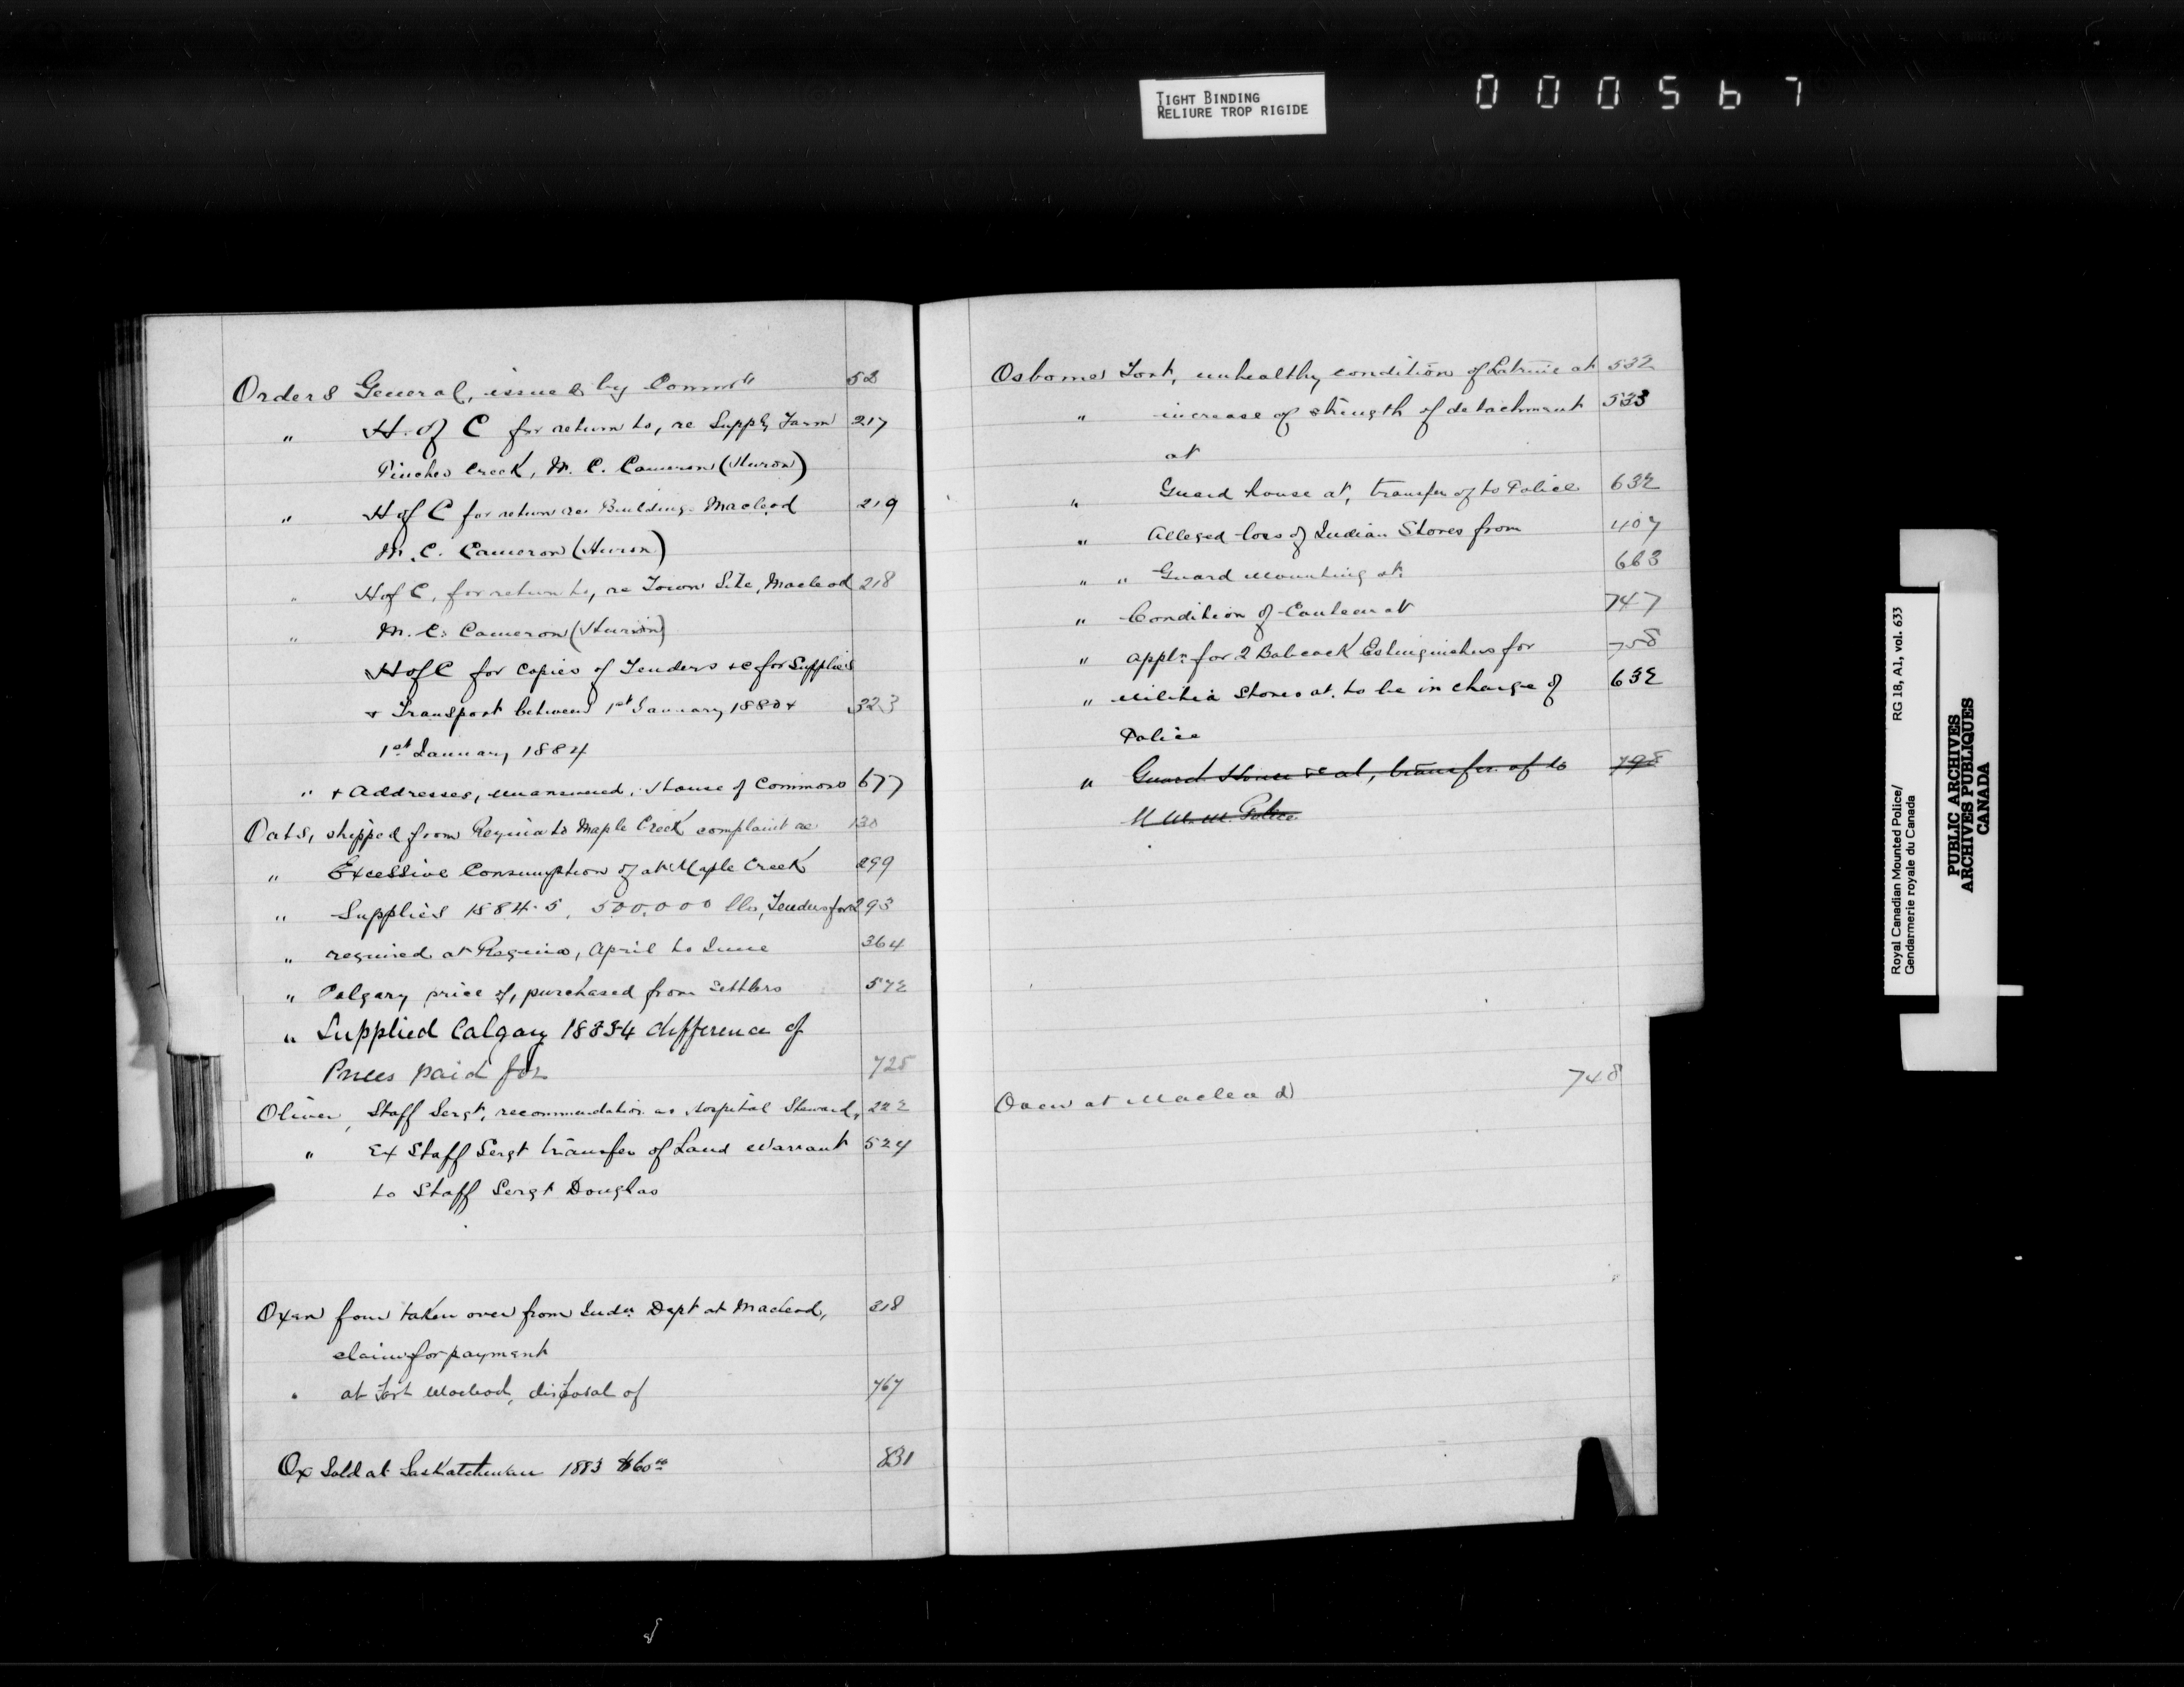 TIGHT BINDING
RELIURE TROP RIGIDE
000567
Orders General, issued by Commr 52
" H. of C for return to, re Supply Farm 217
Pinches Creek, M. C. Cameron (Huron)
" H of C for return re Buildings Macleod 219
M. C. Cameron (Huron)
" H of C, for return to, re Town Site, Macleod 218
" M. C. Cameron (Huron)
H of C for copies of Tenders &c for Supplies
& Transport between 1st January 1880 & 323
1st January 1884
" & Addresses, unanswered, House of Commons 677
Oats, shipped from Regina to Maple Creek complaint re 130
" Excessive Consumption of at Maple Creek 299
" Supplies 1884-5, 500,000 lbs, Tenders for 293
" required at Regina, April to June 364
" Calgary price of, purchased from Settlers 572
" Supplied Calgary 1883-4 difference of
Prices paid for 725
Oliver, Staff Sergt, recommendation as Hospital Steward, 222
" Ex Staff Sergt transfer of Land Warrant 524
to Staff Sergt Douglas
Oxen four taken over from Indn Dept at Macleod, 318
claim for payment
" at Fort Macleod, disposal of 767
Ox Sold at Saskatchewan 1883 $60.00 831
Osborne Fort, unhealthy condition of Latrine at 532
" increase of strength of detachment 533
at
" Guard house at, transfer of to Police 632
" Alleged loss of Indian Stores from 407
" " Guard mounting at 663
" Condition of Canteen at 747
" appln for 2 Babcock Extinguishers for 758
" Militia Stores at to be in charge of 632
Police
" Guard House &c at, transfer of to 798
N. W. M. Police
Oxen at Macleod 748
Royal Canadian Mounted Police/ RG 18, A1, vol. 633
Gendarmerie royale du Canada
PUBLIC ARCHIVES
ARCHIVES PUBLIQUES
CANADA